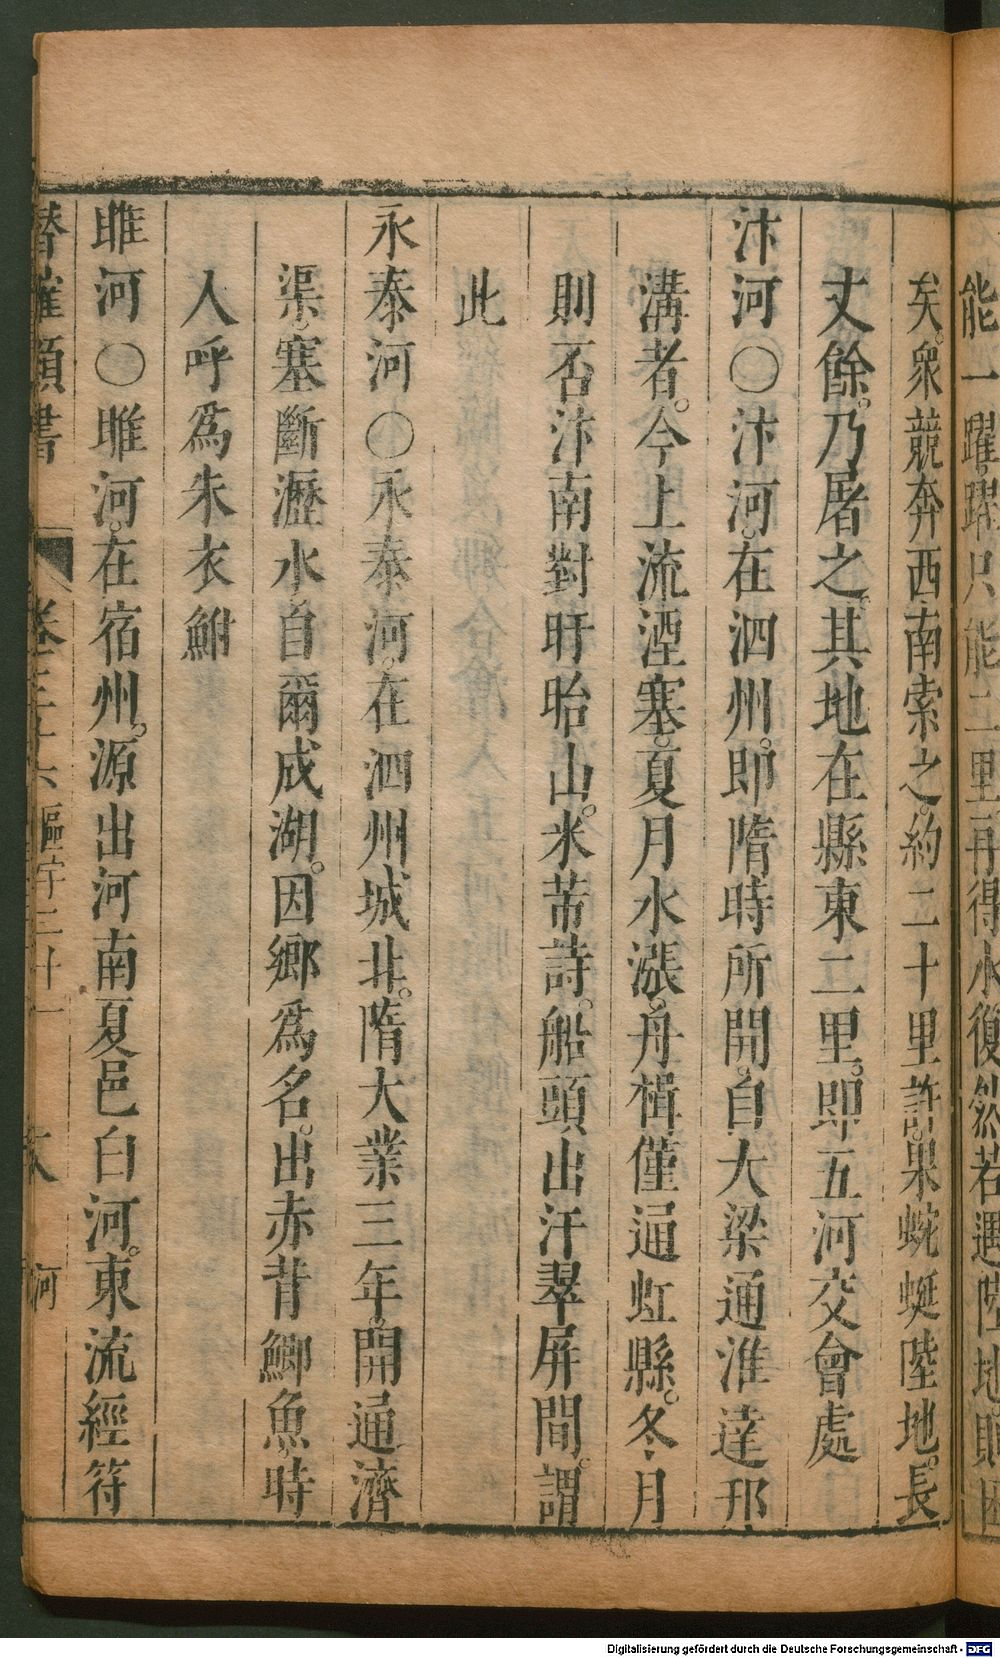 能一躍躍只能二里再得水復然若遇陸地則困
矣。衆競奔西南索之。約二十里許。果蜿蜒陸地。長
丈餘。乃屠之。其地在縣東二里。即五河交會處
汴河〇汴河。在泗州。即隋時所開。自大梁通淮達邗
溝者。今上流湮塞。夏月水漲。舟楫僅通虹縣。冬月
則否汴南對盱眙山。米芾詩。船頭出汴翠屏間。謂
此
永泰河〇永泰河。在泗州城北。隋大業三年。開通濟
渠。塞斷瀝水自爾成湖。因鄉爲名。出赤背鯽魚。時
人呼爲朱衣鮒
睢河〇睢河。在宿州。源出河南夏邑白河。東流經符
潛確類書 卷三十六 區宇三十一 河
Digitalisierung gefördert durch die Deutsche Forschungsgemeinschaft - DFG